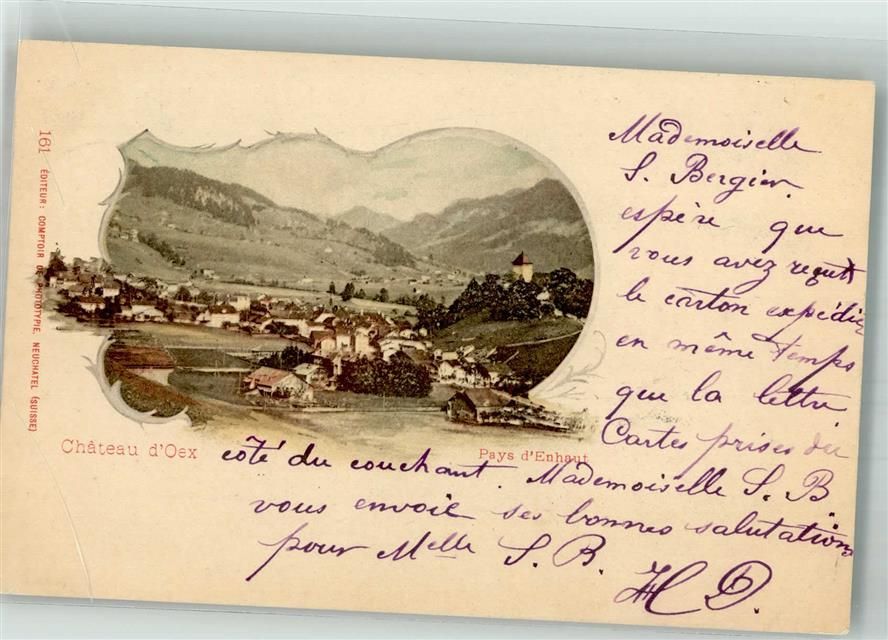 161 ÉDITEUR: COMPTOIR DE PHOTOTYPIE, NEUCHATEL (SUISSE)
Château d'Oex
Pays d'Enhaut
Mademoiselle
S. Bergier
espère que
vous avez reçut
le carton expédié
en même temps
que la lettre
Cartes prises du
côté du couchant. Mademoiselle S. B
vous envoie ses bonnes salutations
pour Melle S. B.
H D.